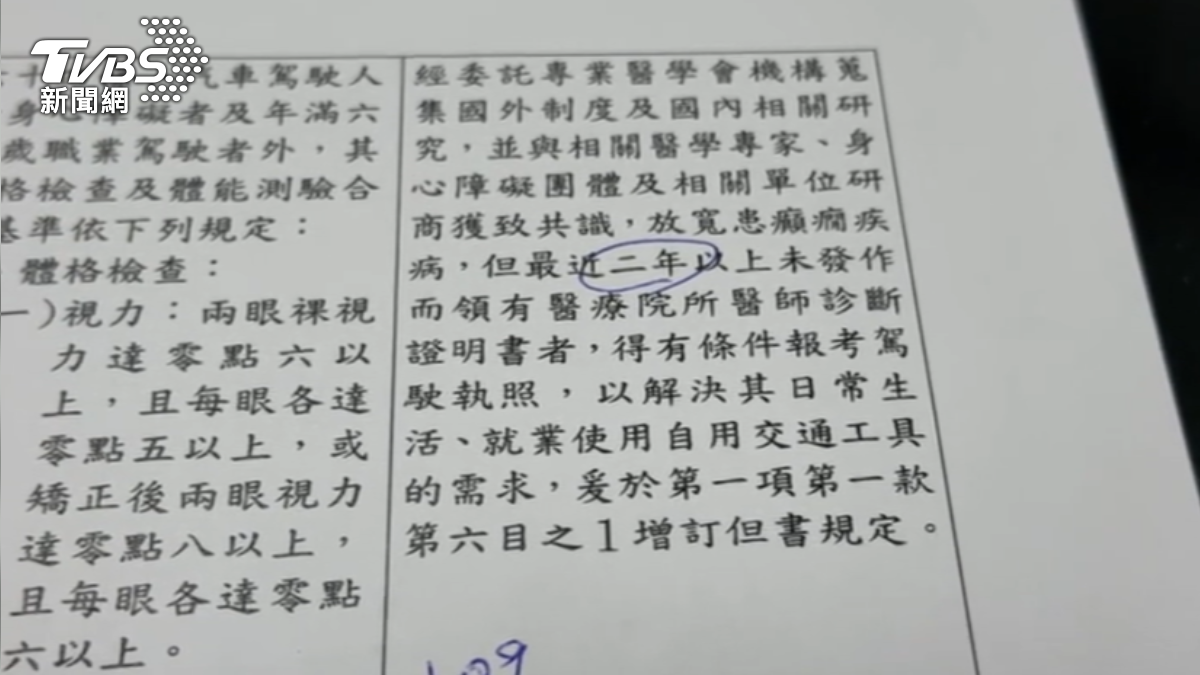 TVBS
新聞網
汽車駕駛人
身心障礙者及年滿六
歲職業駕駛者外，其
格檢查及體能測驗合
基準依下列規定：
體格檢查：
一)視力：兩眼裸視
力達零點六以
上，且每眼各達
零點五以上，或
矯正後兩眼視力
達零點八以上，
且每眼各達零點
六以上。
經委託專業醫學會機構蒐
集國外制度及國內相關研
究，並與相關醫學專家、身
心障礙團體及相關單位研
商獲致共識，放寬患癲癇疾
病，但最近二年以上未發作
而領有醫療院所醫師診斷
證明書者，得有條件報考駕
駛執照，以解決其日常生
活、就業使用自用交通工具
的需求，爰於第一項第一款
第六目之1增訂但書規定。